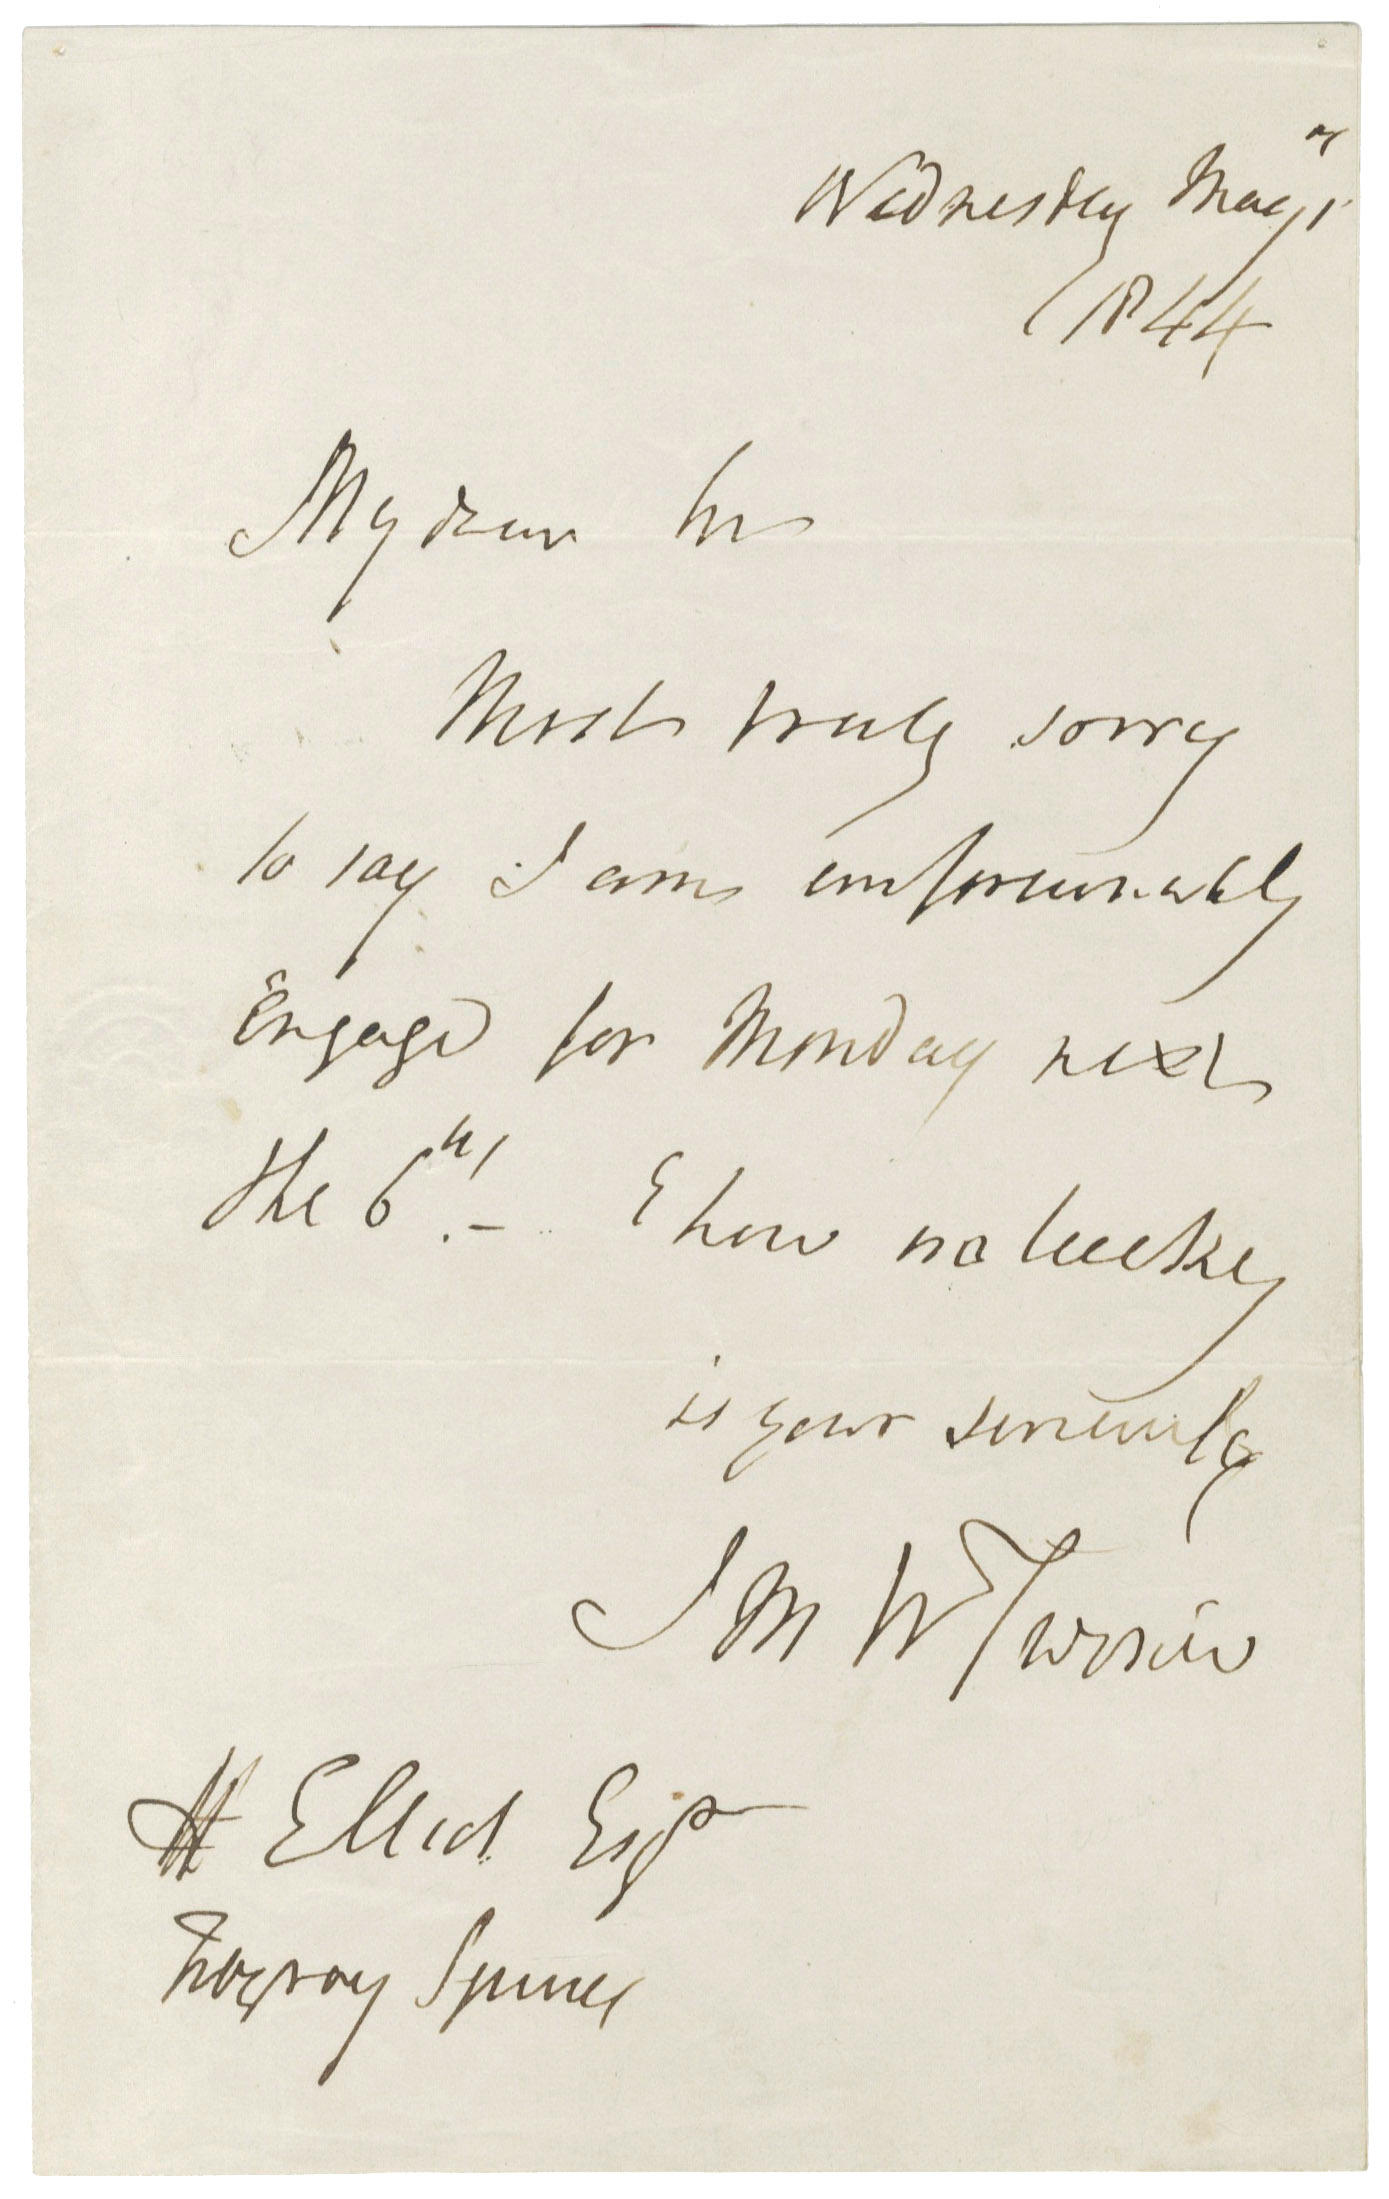 Wednesday May 1st
1844
My dear Sir
Most truly sorry
to say I am unfortunately
Engaged for Monday next
the 6th. –
is your sincerely
J M W Turner
H Elliot Esqr
Fitzroy Square